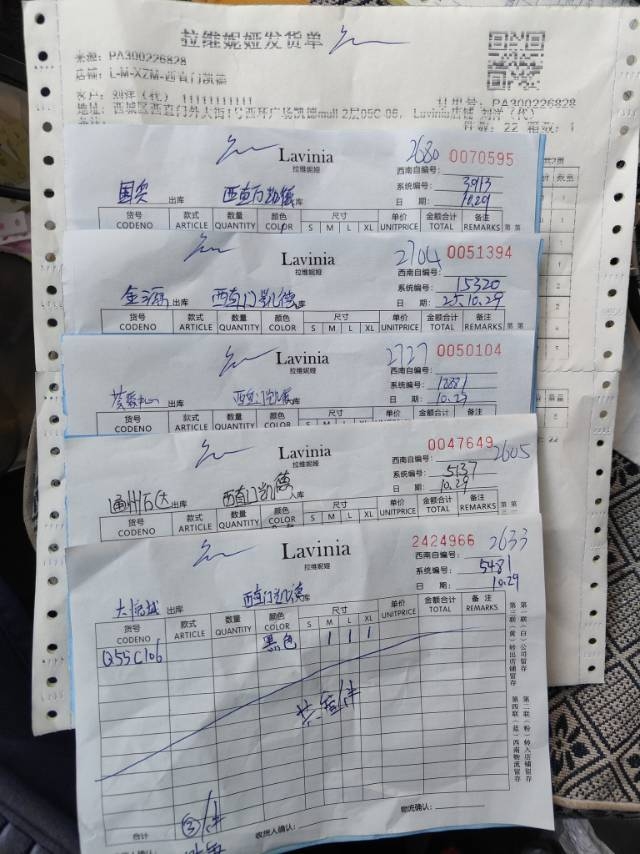 拉维妮娅发货单
来源: PA300226828
店铺: L-M-XZM-西直门凯德
PA300226828
地址: 西城区西直门外大街1号西环广场凯德mall 2层05C-06, Lavinia店铺
件数: 22 箱数: 1
Lavinia
拉维妮娅
2680 0070595
西南自编号:
国奥 出库 西直门凯德 系统编号: 3913
日 期: 10.29
货号 款式 数量 颜色 尺寸 单价 金额合计 备注
CODENO ARTICLE QUANTITY COLOR S M L XL UNITPRICE TOTAL REMARKS
Lavinia
拉维妮娅
2704 0051394
西南自编号:
金源 出库 西直门凯德 库 系统编号: 15320
日 期: 25.10.29
货号 款式 数量 颜色 尺寸 单价 金额合计 备注
CODENO ARTICLE QUANTITY COLOR S M L XL UNITPRICE TOTAL REMARKS
Lavinia
拉维妮娅
2727 0050104
西南自编号:
出库 西直门凯德 系统编号: 12881
日 期: 10.29
货号 款式 数量 颜色 尺寸 单价 金额合计 备注
CODENO ARTICLE QUANTITY COLOR S M L XL UNITPRICE TOTAL REMARKS
Lavinia
拉维妮娅
0047649 2605
西南自编号:
通州万达 出库 西直门凯德 入库 系统编号: 5137
日 期: 10.29
货号 款式 数量 颜色 尺寸 单价 金额合计 备注
CODENO ARTICLE QUANTITY COLOR S M L XL UNITPRICE TOTAL REMARKS
Lavinia
拉维妮娅
2424966 2633
西南自编号:
系统编号: 5481
大悦城 出库 西直门凯德 库 日 期: 10.29
货号 款式 数量 颜色 尺寸 单价 金额合计 备注
CODENO ARTICLE QUANTITY COLOR S M L XL UNITPRICE TOTAL REMARKS
Q55C106 黑色 1 1 1
共叁件
合计 ③件
收货人确认: 物流确认:
第一联(白)公司留存
第三联(黄)转出店铺留存
第二联(粉)转入店铺留存
第四联(蓝)西南物流留存